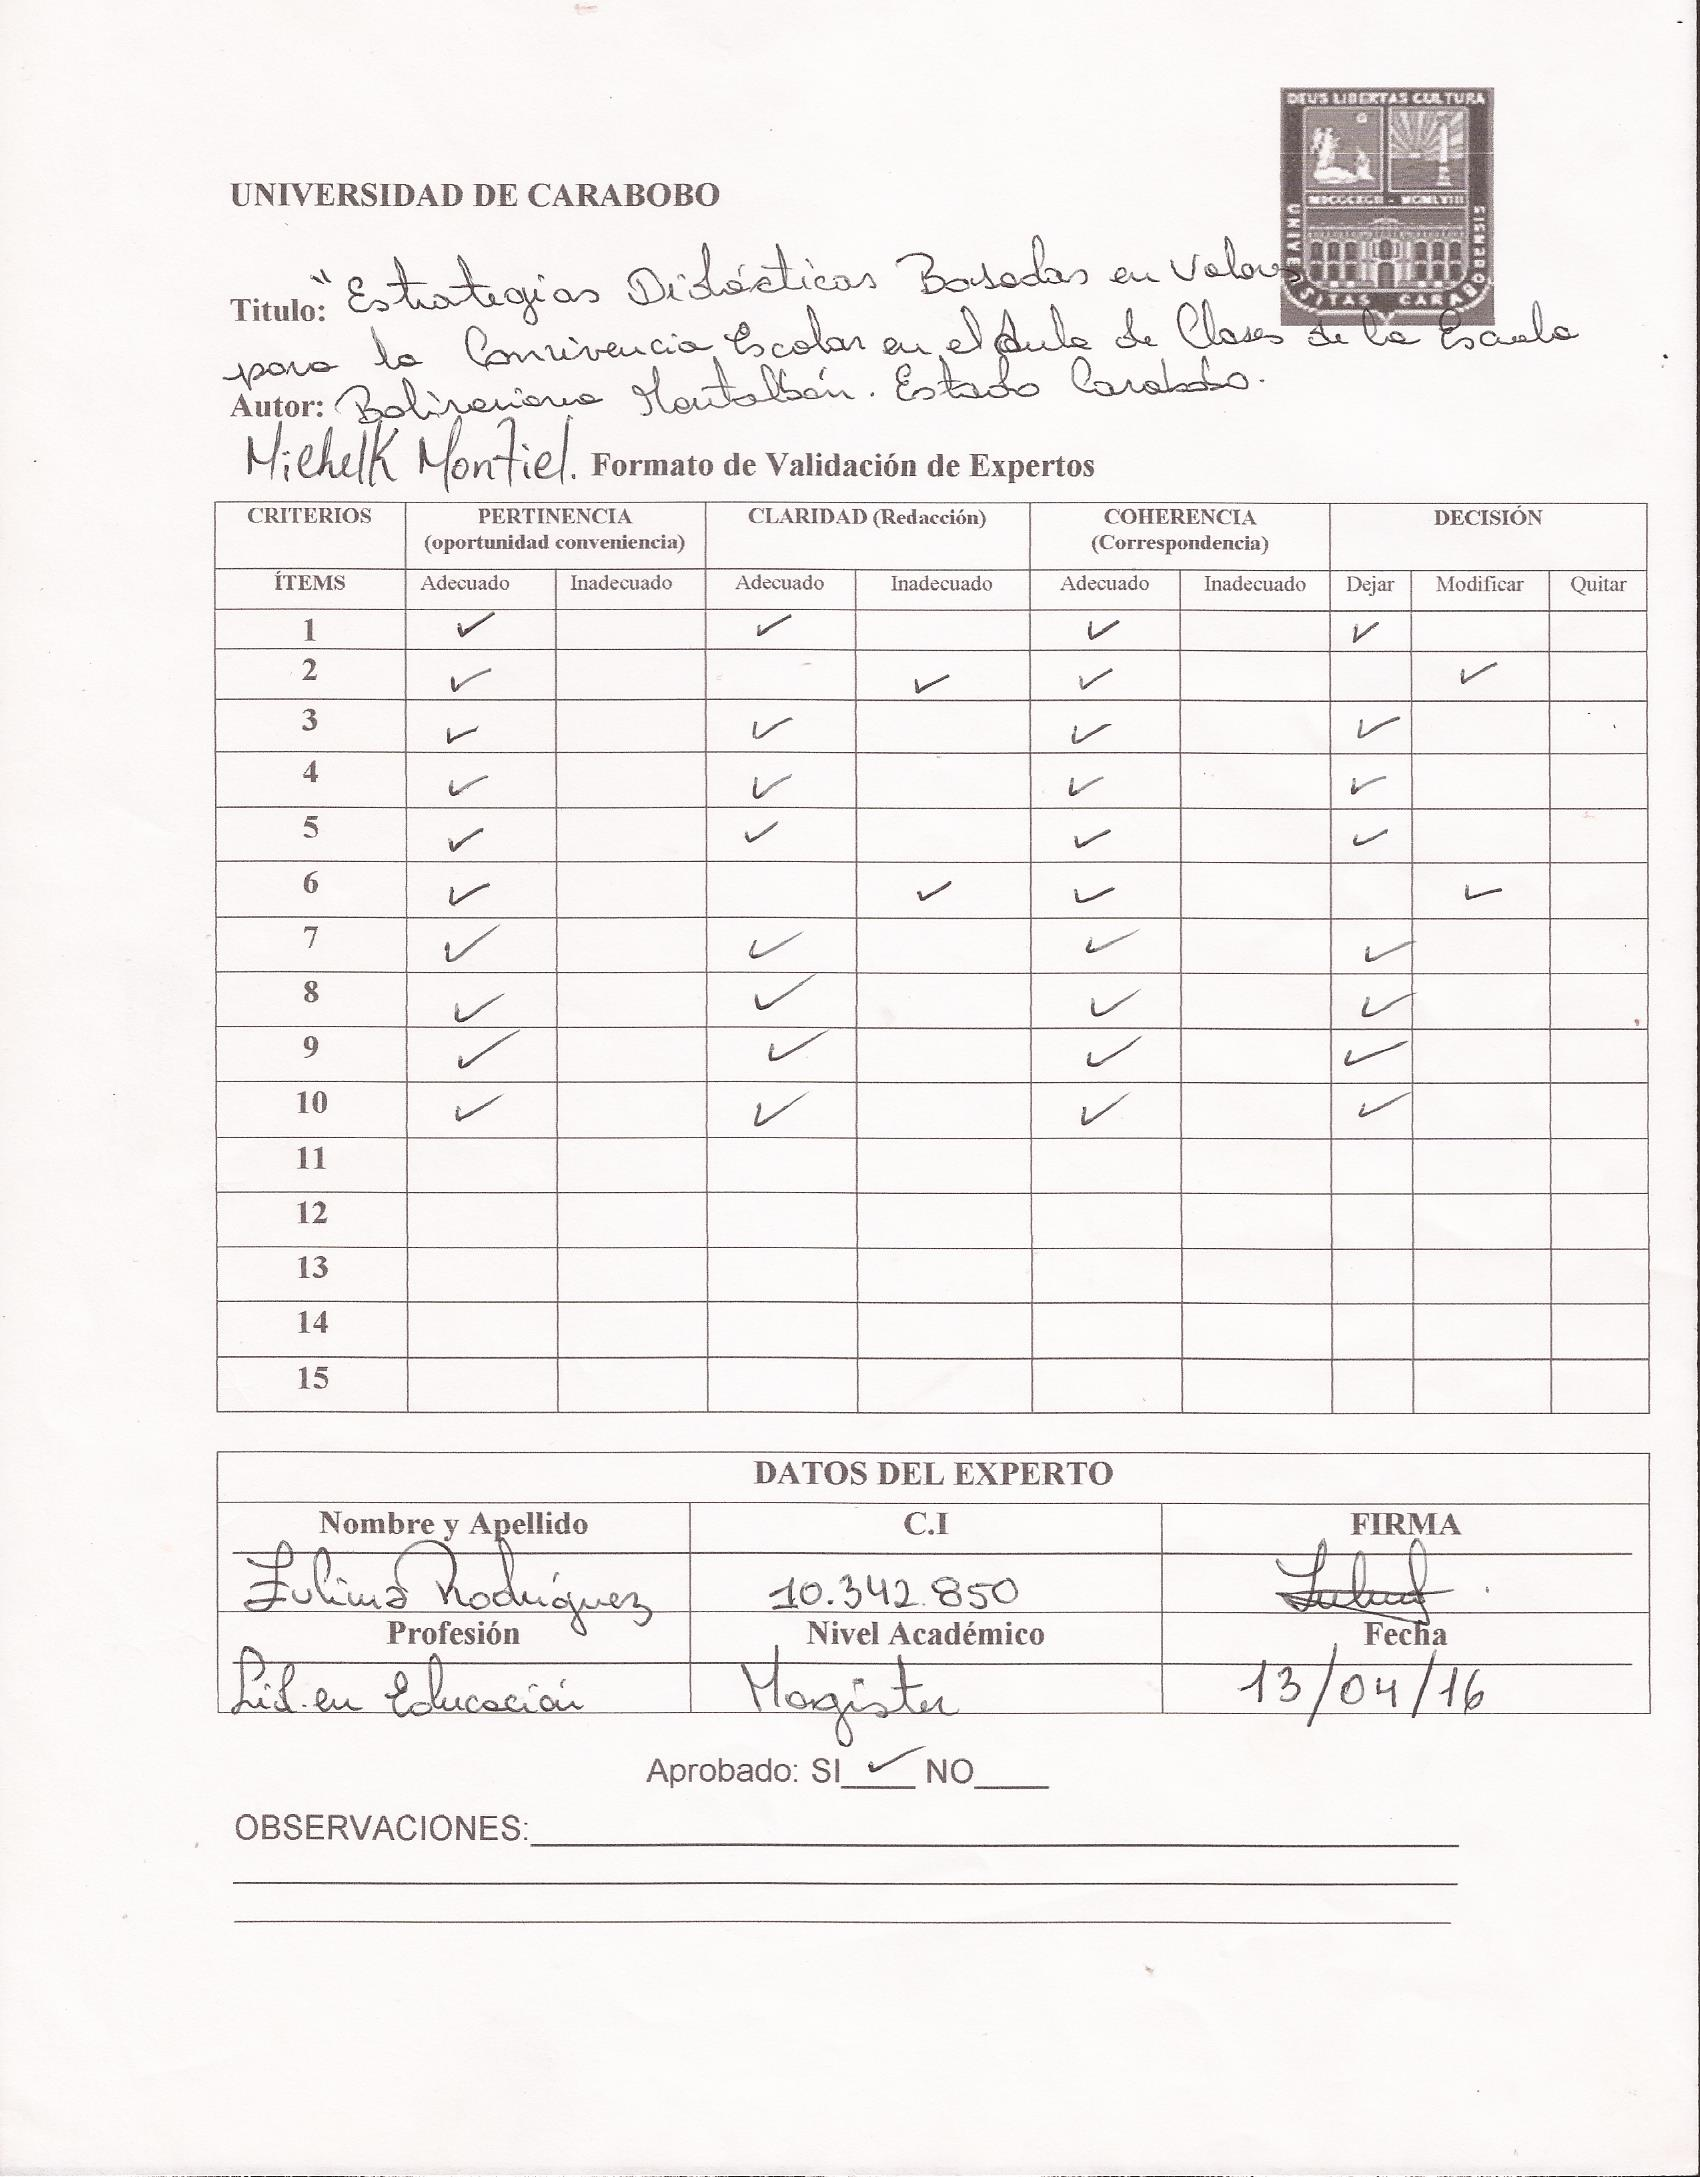 DEUS LIBERTAS CULTURA
UNIVERSITAS CARABOBENSIS
UNIVERSIDAD DE CARABOBO
Titulo: "Estrategias Didácticas Basadas en Valores
para la Convivencia Escolar en el Aula de Clases de la Escuela
Autor: Bolivariana Montalbán. Estado Carabobo.
Michell Montiel. Formato de Validación de Expertos
CRITERIOS PERTINENCIA CLARIDAD (Redacción) COHERENCIA DECISIÓN
(oportunidad conveniencia) (Correspondencia)
ÍTEMS Adecuado Inadecuado Adecuado Inadecuado Adecuado Inadecuado Dejar Modificar Quitar
1 ✓ ✓ ✓ ✓
2 ✓ ✓ ✓ ✓
3 ✓ ✓ ✓ ✓
4 ✓ ✓ ✓ ✓
5 ✓ ✓ ✓ ✓
6 ✓ ✓ ✓ ✓
7 ✓ ✓ ✓ ✓
8 ✓ ✓ ✓ ✓
9 ✓ ✓ ✓ ✓
10 ✓ ✓ ✓ ✓
11
12
13
14
15
DATOS DEL EXPERTO
Nombre y Apellido C.I FIRMA
Zulima Rodríguez 10.342.850
Profesión Nivel Académico Fecha
en Educación Magister 13/04/16
Aprobado: SI ✓ NO____
OBSERVACIONES: